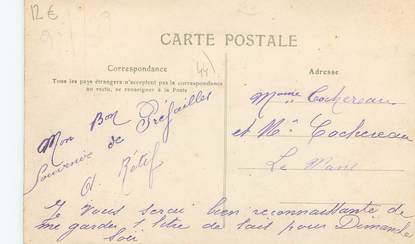 12€
CARTE POSTALE
Correspondance
44
Tous les pays étrangers n'acceptent pas la correspondance
au recto, se renseigner à la Poste
Mon Bon
Souvenir de Préfailles
A. Rétif
Je vous serai bien reconnaissante de
me garder 1 litre de lait pour Dimanche
soir
Adresse
Mme Cochereau
et Mr Cochereau
Le Mans